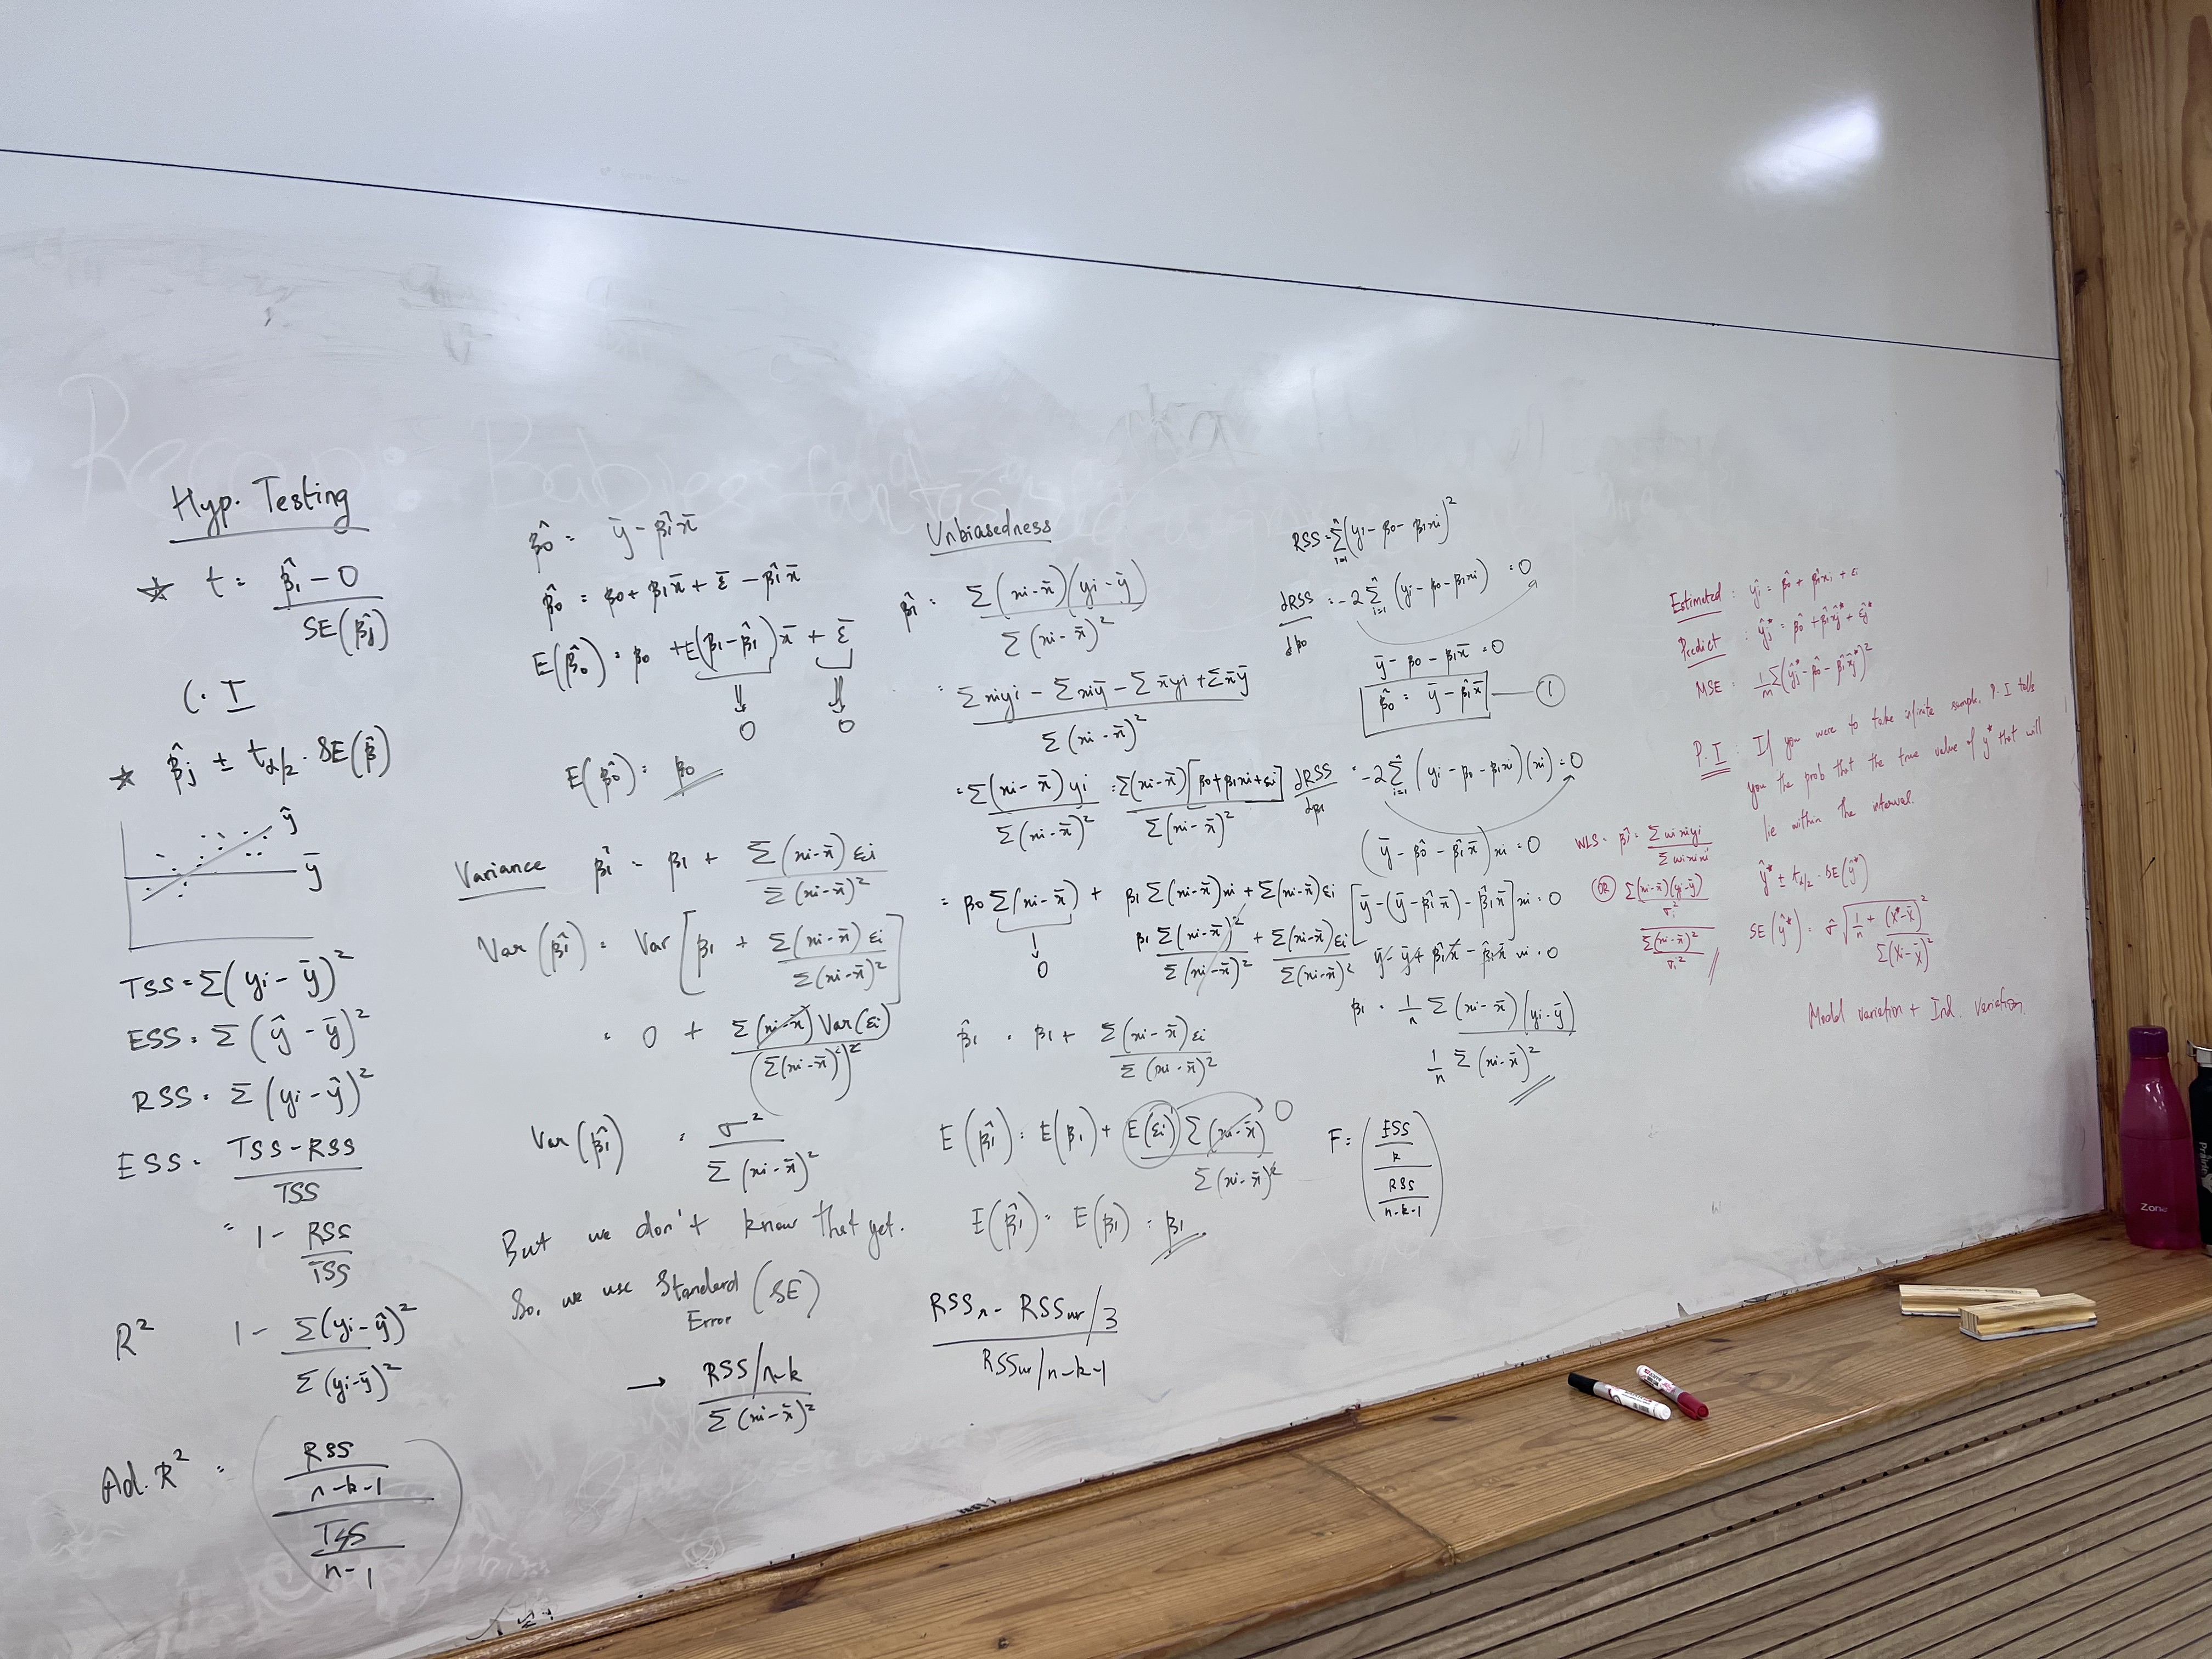 Hyp. Testing
☆ t = (β̂1 − 0) / SE(β̂j)
C. I
☆ β̂j ± tα/2 . SE(β̂)
ŷ
ȳ
TSS = Σ(yi − ȳ)²
ESS = Σ(ŷ − ȳ)²
RSS = Σ(yi − ŷ)²
ESS = (TSS − RSS) / TSS
= 1 − RSS / TSS
R² 1 − Σ(yi − ŷ)² / Σ(yi − ȳ)²
Ad. R² = ((RSS / n−k−1) / (TSS / n−1))
β̂0 = ȳ − β̂1x̄
β̂0 = β0 + β1x̄ + ε̄ − β̂1x̄
E(β̂0) = β0 + E(β1 − β̂1)x̄ + ε̄
⇓ ⇓
0 0
E(β̂0) = β0
Variance β̂1 = β1 + Σ(xi − x̄)εi / Σ(xi − x̄)²
Var(β̂1) = Var[β1 + Σ(xi − x̄)εi / Σ(xi − x̄)²]
= 0 + Σ(xi − x̄)² Var(εi) / (Σ(xi − x̄)²)²
Var(β̂1) = σ² / Σ(xi − x̄)²
But we don't know that yet.
So, we use Standard Error (SE)
→ RSS/n−k / Σ(xi − x̄)²
Unbiasedness
β̂1 = Σ(xi − x̄)(yi − ȳ) / Σ(xi − x̄)²
= Σxiyi − Σxiȳ − Σx̄yi + Σx̄ȳ / Σ(xi − x̄)²
= Σ(xi − x̄)yi / Σ(xi − x̄)² = Σ(xi − x̄)[β0 + β1xi + εi] / Σ(xi − x̄)²
= β0 Σ(xi − x̄) + β1 Σ(xi − x̄)xi + Σ(xi − x̄)εi
↓
0
β1 Σ(xi − x̄)² / Σ(xi − x̄)² + Σ(xi − x̄)εi / Σ(xi − x̄)²
β̂1 = β1 + Σ(xi − x̄)εi / Σ(xi − x̄)²
E(β̂1) = E(β1) + E(εi) Σ(xi − x̄) / Σ(xi − x̄)² 0
E(β̂1) = E(β1) = β1
RSSr − RSSur/3 / RSSur/n−k−1
RSS = Σⁿi=1 (yi − β0 − β1xi)²
dRSS / dβ0 = −2 Σⁿi=1 (yi − β0 − β1xi) = 0
ȳ − β0 − β1x̄ = 0
β̂0 = ȳ − β̂1x̄ — ①
dRSS / dβ1 = −2 Σⁿi=1 (yi − β0 − β1xi)(xi) = 0
(ȳ − β̂0 − β̂1x̄)xi = 0
[ȳ − (ȳ − β̂1x̄) − β̂1x̄]xi = 0
ȳ − ȳ + β̂1x̄ − β̂1x̄ xi = 0
β1 = 1/n Σ(xi − x̄)(yi − ȳ) / 1/n Σ(xi − x̄)²
F = ((ESS / k) / (RSS / n−k−1))
Estimated : ŷi = β̂0 + β̂1xi + εi
Predict : ŷj* = β̂0 + β̂1xj* + εj*
MSE : 1/m Σ(ŷj* − β̂0 − β̂1xj*)²
P. I : If you were to take infinite sample, P. I tells
you the prob that the true value of y* that will
lie within the interval.
WLS = β̂1 = Σwixiyi / Σwixixi
OR Σ(xi − x̄)(yi − ȳ) / σi² / Σ(xi − x̄)² / σi²
ŷ* ± tα/2 . SE(ŷ*)
SE(ŷ*) = σ̂ √(1/n + (X* − X̄)² / Σ(Xi − X̄)²)
Model variation + Ind. variation.
Zone